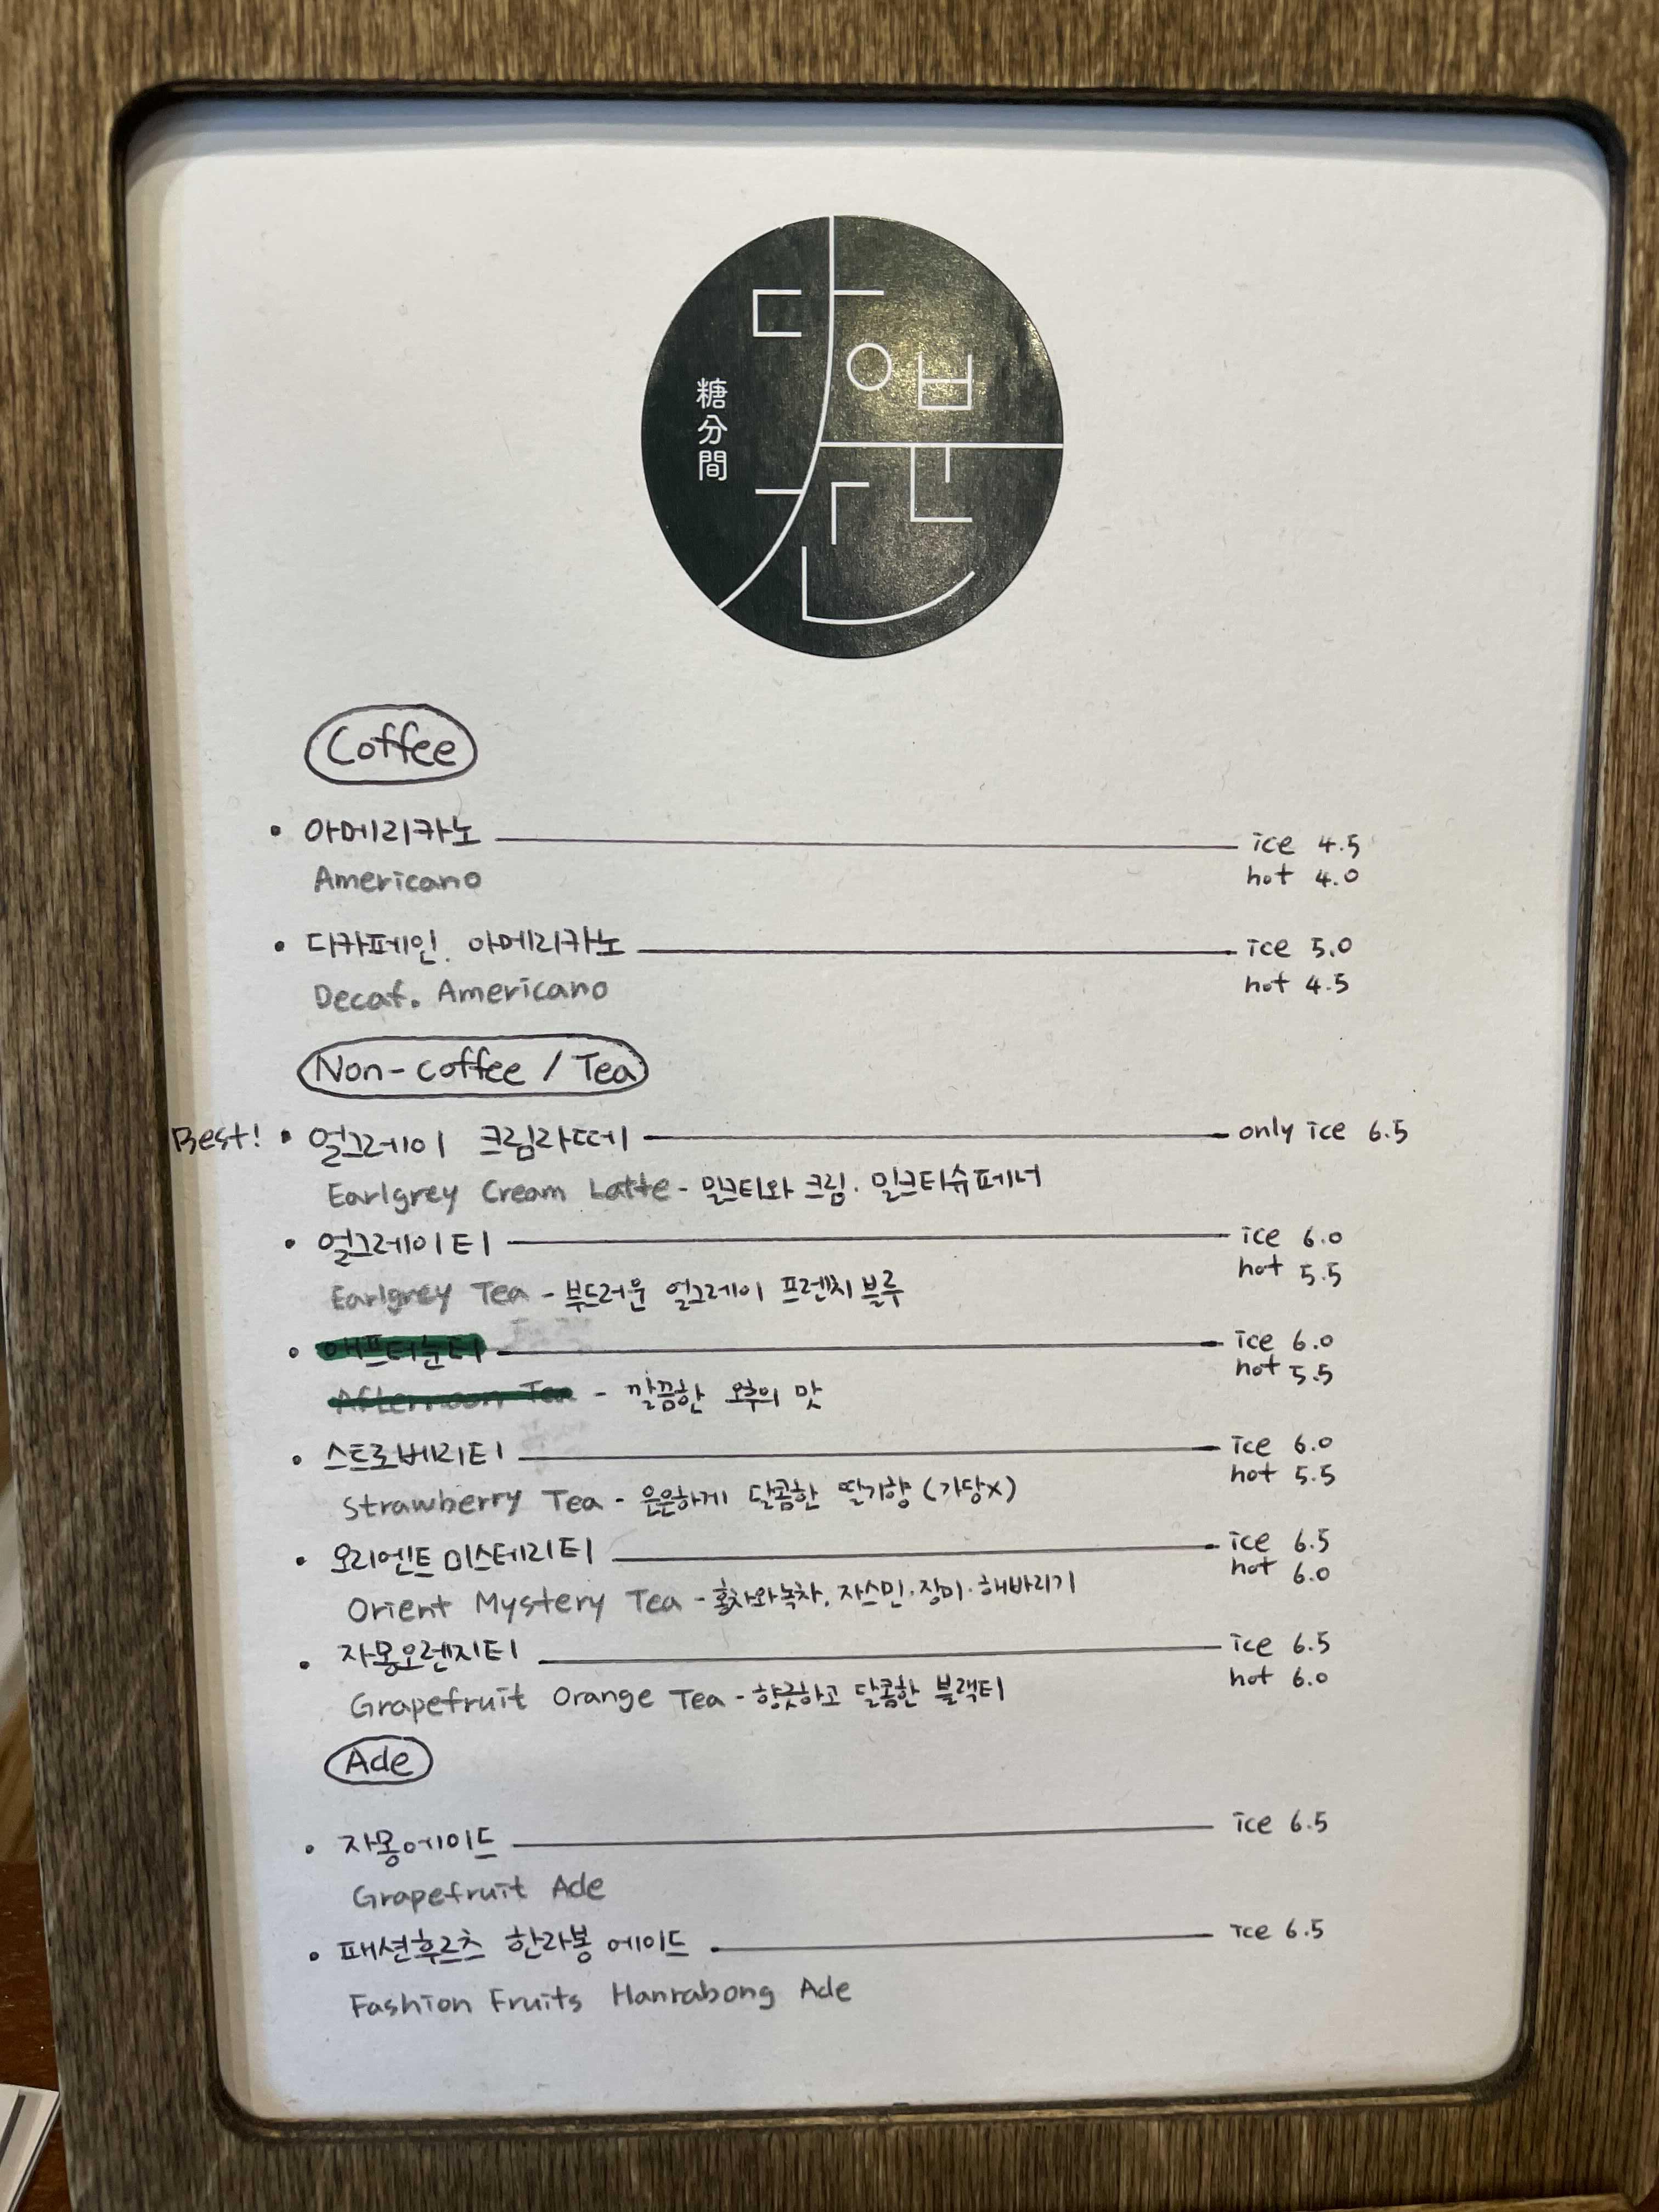 당분간
糖分間
Coffee
• 아메리카노 ice 4.5
Americano hot 4.0
• 디카페인. 아메리카노 ice 5.0
Decaf. Americano hot 4.5
Non-coffee / Tea
Best! • 얼그레이 크림라떼 only ice 6.5
Earlgrey Cream Latte - 밀크티와 크림. 밀크티슈페너
• 얼그레이티 ice 6.0
hot 5.5
Earlgrey Tea - 부드러운 얼그레이 프렌치블루
• 애프터눈티 ice 6.0
hot 5.5
Afternoon Tea - 깔끔한 오후의 맛
• 스트로베리티 ice 6.0
hot 5.5
Strawberry Tea - 은은하게 달콤한 딸기향 (가당X)
• 오리엔트 미스테리티 ice 6.5
hot 6.0
Orient Mystery Tea - 홍차와녹차, 자스민·장미·해바라기
• 자몽오렌지티 ice 6.5
hot 6.0
Grapefruit Orange Tea - 향긋하고 달콤한 블랙티
Ade
• 자몽에이드 ice 6.5
Grapefruit Ade
• 패션후르츠 한라봉 에이드 ice 6.5
Fashion Fruits Hanrabong Ade